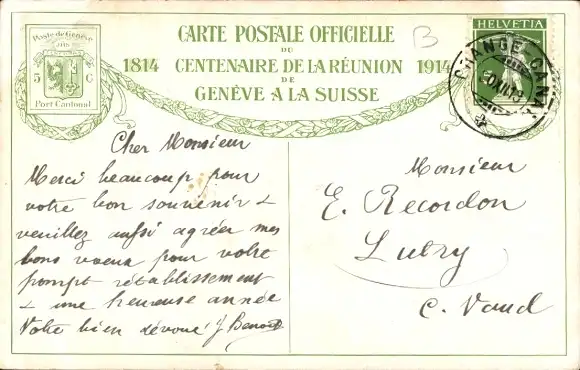 CARTE POSTALE OFFICIELLE
DU
1814 CENTENAIRE DE LA RÉUNION 1914
DE
GENÈVE A LA SUISSE
Poste de Genève
5 C
Port Cantonal
HELVETIA
B
Cher Monsieur
Merci beaucoup pour
votre bon souvenir &
veuillez aussi agréer mes
bons voeux pour votre
prompt rétablissement
& une heureuse année
Votre bien dévoué J.
Monsieur
E. Recordon
Lutry
C. Vaud